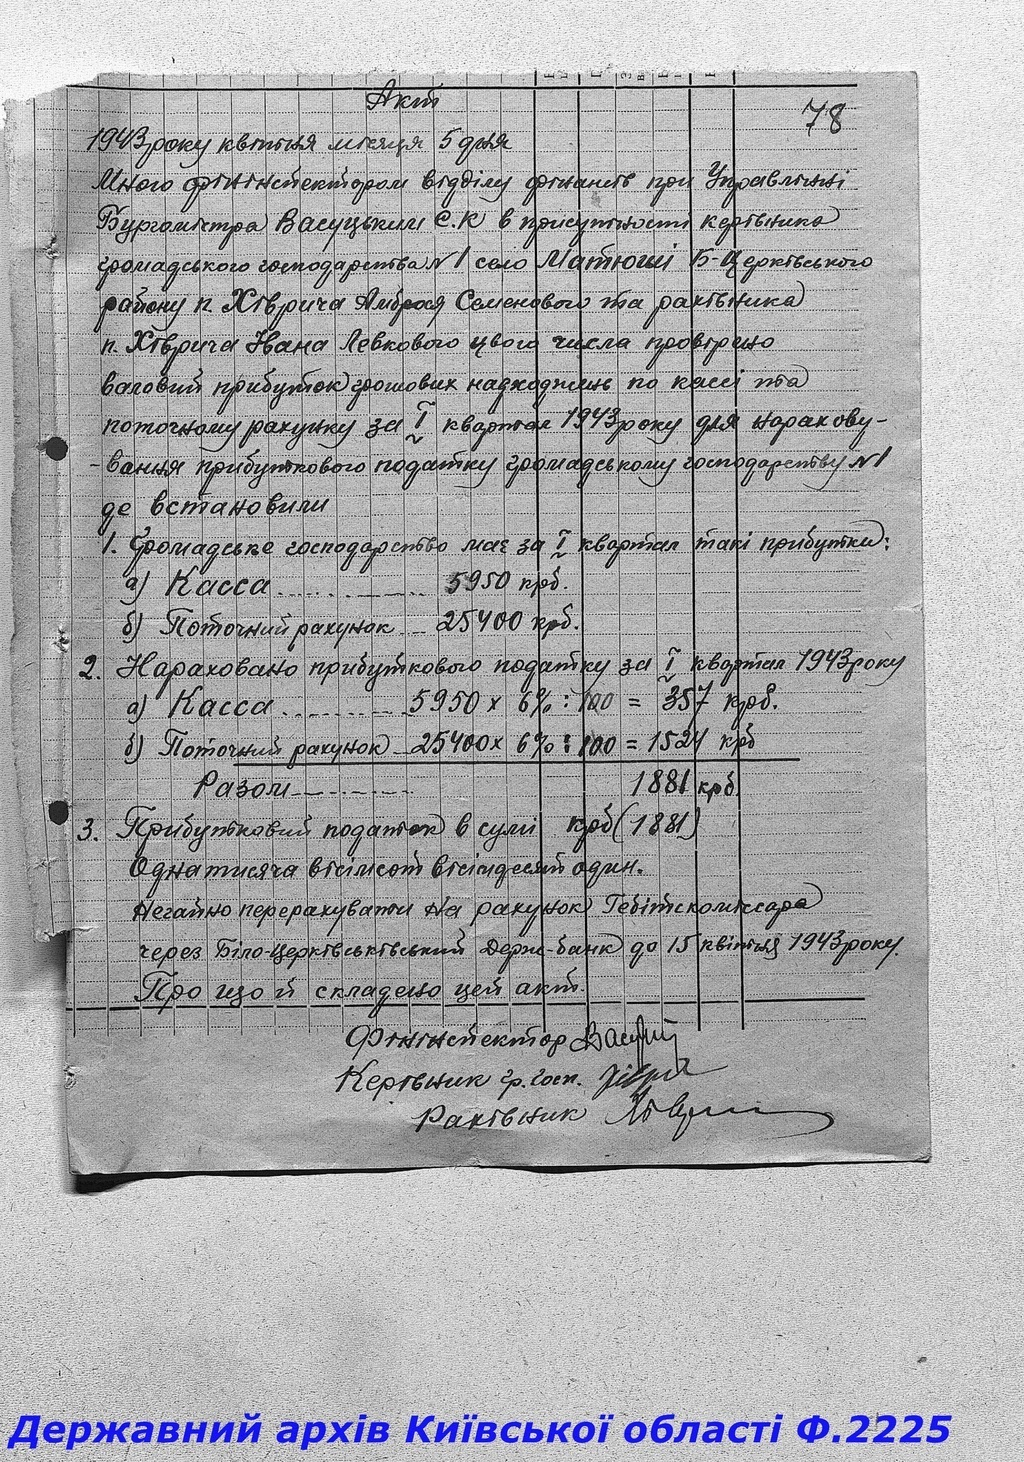 Акт
78
1943 року квітня місяця 5 дня
Мною фінінспектором відділу фінансів при Управлінні
Бургомістра Васуцьким С.К в присутности керівника
громадського господарства №1 село Матюші Б-Церківського
району п. Хіврича Амброся Семенового та рахівника
п. Хіврича Івана Левкового цього числа провірено
валовий прибуток грошових надходжень по кассі та
поточному рахунку за І квартал 1943 року для нарахову-
-вання прибуткового податку громадському господарству №1
де встановили
1. Громадське господарство має за І квартал такі прибутки:
а) Касса ........... 5950 крб.
б) Поточний рахунок ... 25400 крб.
2. Нараховано прибуткового податку за І квартал 1943 року
а) Касса ........... 5950 х 6% : 100 = 357 крб.
б) Поточний рахунок ... 25400 х 6% : 100 = 1524 крб
Разом ........... 1881 крб.
3. Прибутковий податок в сумі крб (1881)
Одна тисяча вісімсот вісімдесят один.
Негайно перерахувати на рахунок Гебітскоміссара
через Біло-Церківськівський Держ-банк до 15 квітня 1943 року.
Про що й складено цей акт.
Фінінспектор
Керівник гр. госп.
Рахівник
Державний архів Київської області Ф.2225